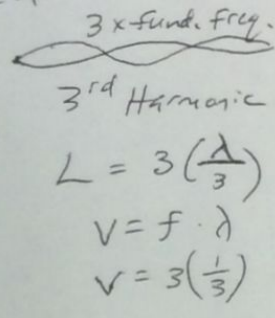 3 x fund. freq.
3rd Harmonic
L = 3(λ/3)
V = f · λ
V = 3(1/3)